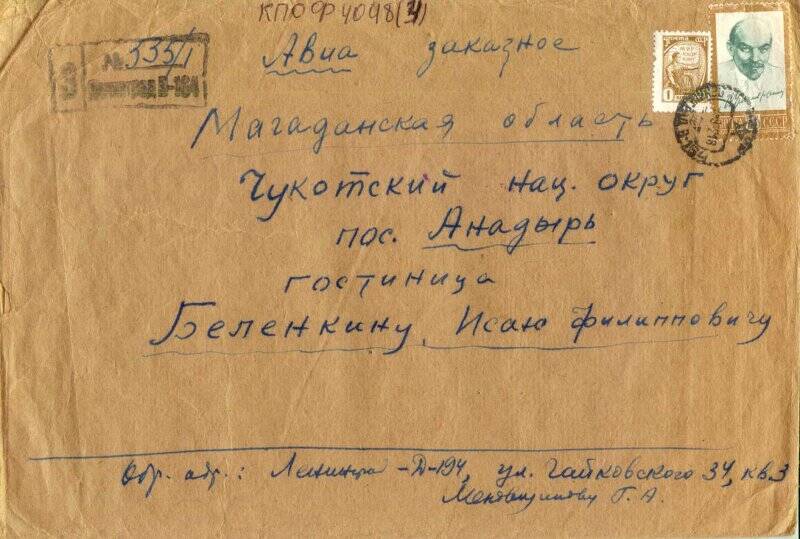 КПОФ 4048(31)
З № 535/1
Ленинград Д-194
Авиа заказное
Магаданская область
Чукотский нац. округ
пос. Анадырь
гостиница
Беленкину, Исаю Филипповичу
Обр. адр.: Ленинград-Д-194, ул. Чайковского 34, кв.3
Меновщикову Г. А.